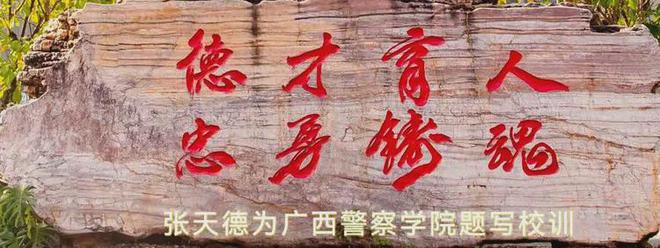 德才育人
忠勇铸魂
张天德为广西警察学院题写校训